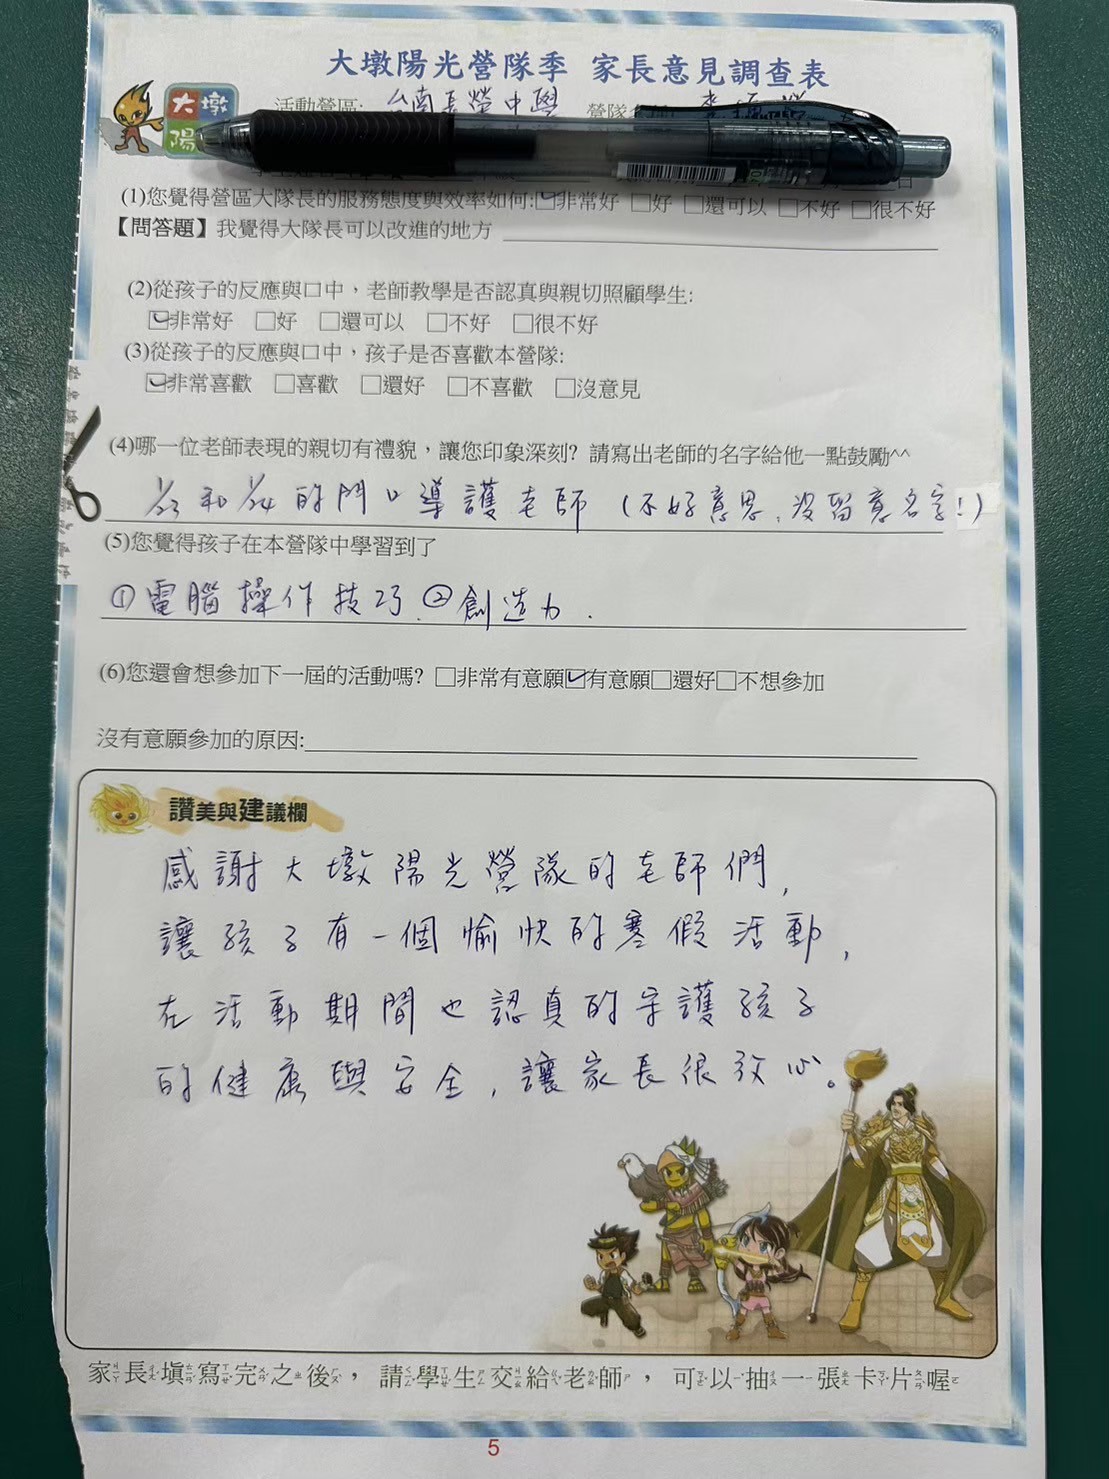 大墩陽光營隊季 家長意見調查表
大墩
陽
活動營區: 台南長榮中學
(1)您覺得營區大隊長的服務態度與效率如何:☑非常好 □好 □還可以 □不好 □很不好
【問答題】我覺得大隊長可以改進的地方
(2)從孩子的反應與口中，老師教學是否認真與親切照顧學生:
☑非常好 □好 □還可以 □不好 □很不好
(3)從孩子的反應與口中，孩子是否喜歡本營隊:
☑非常喜歡 □喜歡 □還好 □不喜歡 □沒意見
(4)哪一位老師表現的親切有禮貌，讓您印象深刻? 請寫出老師的名字給他一點鼓勵^^
1/23 和 1/24 的門口導護老師 (不好意思, 沒留意名字!)
(5)您覺得孩子在本營隊中學習到了
①電腦操作技巧. ②創造力.
(6)您還會想參加下一屆的活動嗎? □非常有意願☑有意願□還好□不想參加
沒有意願參加的原因:
讚美與建議欄
感謝大墩陽光營隊的老師們,
讓孩子有一個愉快的寒假活動,
在活動期間也認真的守護孩子
的健康與安全, 讓家長很放心。
家長填寫完之後，請學生交給老師，可以抽一張卡片喔
5